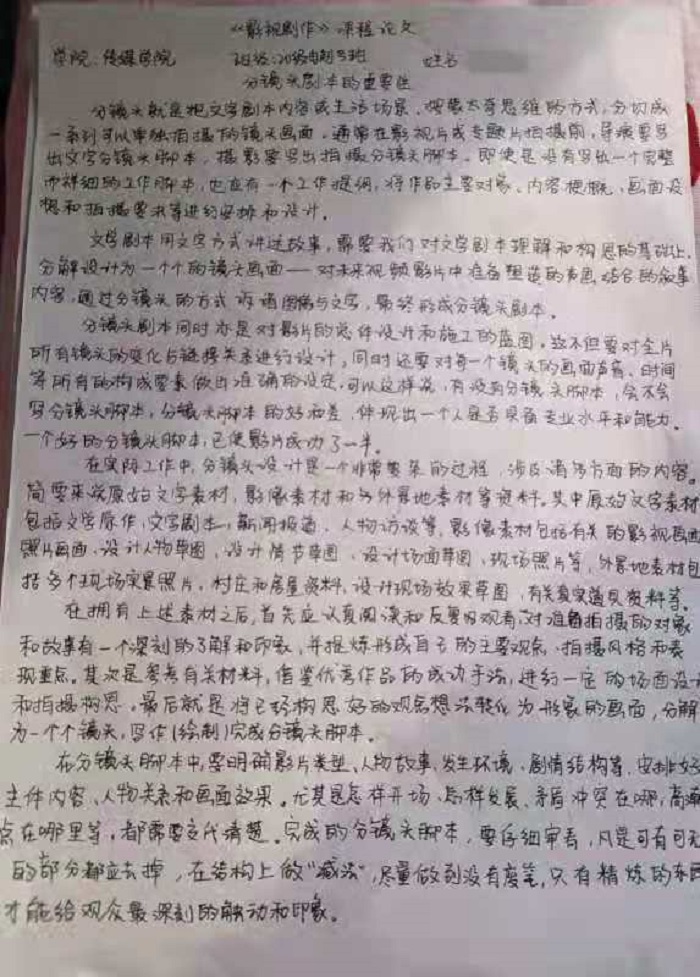 《影视剧作》课程论文
学院：传媒学院 班级：20级电制3班 姓名
分镜头剧本的重要性
分镜头就是把文字剧本内容或生活场景，按蒙太奇思维的方式，分切成
一系列可以单独拍摄下的镜头画面，通常在影视片或专题片拍摄前，导演要写
出文字分镜头脚本，摄影要写出拍摄分镜头脚本。即使是没有写出一个完整
而详细的工作脚本，也应有一个工作提纲，将作品主要对象、内容梗概、画面设
想和拍摄要求等进行安排和设计。
文学剧本用文字方式讲述故事，需要我们对文学剧本理解和构思的基础上，
分解设计为一个个的镜头画面——对未来视频影片中准备塑造的声画结合的叙事
内容，通过分镜头的方式诉诸图稿与文字，最终形成分镜头剧本。
分镜头剧本同时亦是对影片的总体设计和施工的蓝图。这不但要对全片
所有镜头的变化与链接关系进行设计，同时还要对每一个镜头的画面声音、时间
等所有的构成要素做出准确的设定，可以这样说，有没有分镜头脚本，会不会
写分镜头脚本，分镜头脚本的好和差，体现出一个人是否具备专业水平和能力。
一个好的分镜头脚本，已使影片成功了一半。
在实际工作中，分镜头设计是一个非常繁杂的过程，涉及诸多方面的内容。
简要来说原始文字素材，影像素材和外景地素材等资料。其中原始文字素材
包括文学原作，文字剧本，新闻报道、人物访谈等，影像素材包括有关的影视画面
照片画面、设计人物草图、设计情节草图、设计场面草图、现场照片等，外景地素材包
括多个现场实景照片，村庄和房屋资料，设计现场效果草图，有关真实道具资料等。
在拥有上述素材之后，首先应认真阅读和反复的观看，对准备拍摄的对象
和故事有一个深刻的了解和印象，并提炼形成自己的主要观点、拍摄风格和表
现重点。其次是参考有关材料，借鉴优秀作品的成功手法，进行一定的场面设计
和拍摄构思。最后就是将已经构思好的观念想法转化为形象的画面，分解
为一个个镜头，写作(绘制)完成分镜头脚本。
在分镜头脚本中，要明确影片类型、人物故事、发生环境、剧情结构等，安排好
主体内容、人物关系和画面效果。尤其是怎样开场、怎样发展、矛盾冲突在哪，高潮
点在哪里等，都需要交代清楚。完成的分镜头脚本，要仔细审看，凡是可有可无
的部分都应去掉，在结构上做“减法”，尽量做到没有废笔，只有精炼的东西
才能给观众最深刻的触动和印象。